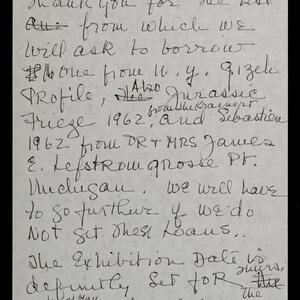 Thank you for the list
from which we
will ask to borrow
one from N.Y. Gizeh
Profile, Also Jurassic
from the Daisert
Frieze 1962, and Sebastien
1962 from DR & MRS James
E. Lofstrom grosse Pt.
Muchigan. We will have
to go further if we do
Not get these Loans..
The Exhibition Date is
definitly Set foR
The